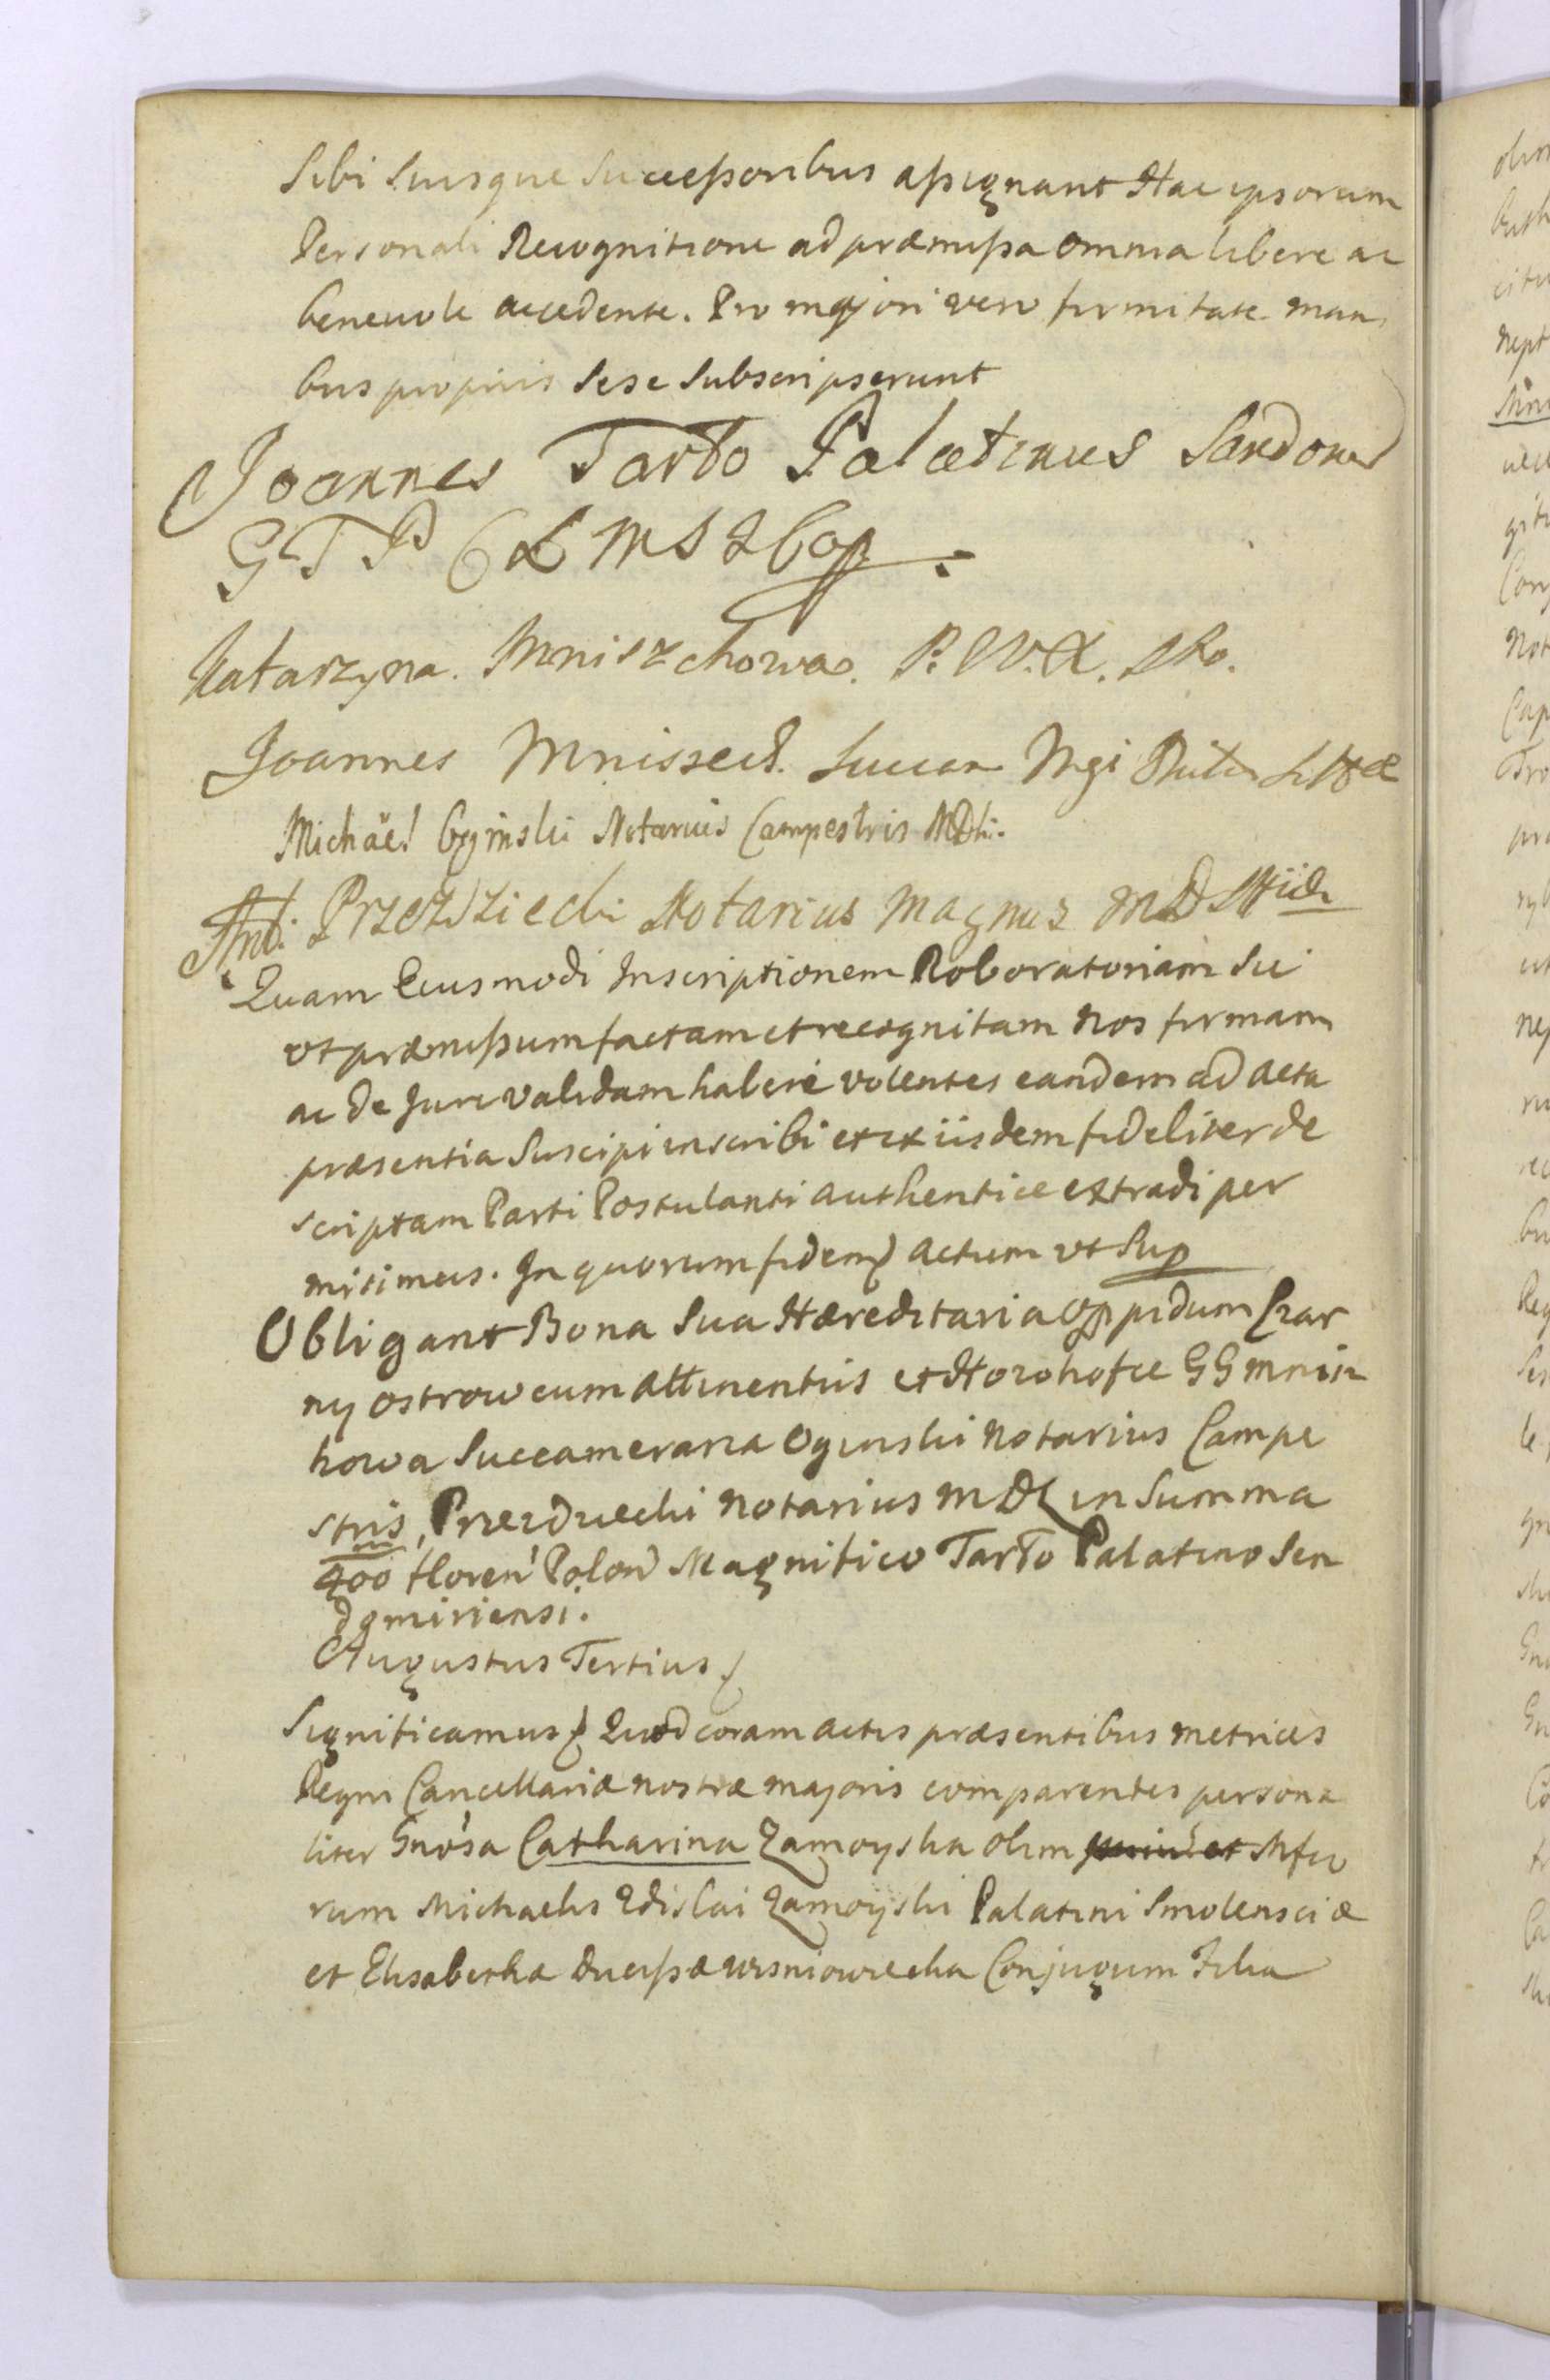 Sibi Suisque Successoribus assignant Hac ipsorum
Personali Recognitione ad præmissa omnia libere ac
benevole accedente. Pro majori vero firmitate manu
bus propriis sese subscripserunt
Joannes Tarło Palatinus Sandomi
G T P
Katarzyna. Mniszchowa. P. W. X.
Joannes Mniszech. Succam Mgi Ducus Litt̃æ
Michäel Ogiński Notarius Campestris MDL.
Ant: Przezdziecki Notarius Magnus M D
Quam Ejusmodi Inscriptionem Roboratoriam sic
ut præmissum factam et recognitam nos firmam
ac de Jure validam habere volentes eandem ad acta
præsentia Suscipi inscribi et ex iisdem fideliter de
scriptam Parti Postulanti authentice extradi per
misimus. In quorum fidem actum ut Sup
Obligant Bona Sua Hæreditaria Oppidum Czar
ny ostrow cum attinentiis et GG mnisz
howa Succameraria Oginski Notarius Campe
stris, Przezdziecki Notarius MDL in Summa
400 floren Polon Magnifico Tarło Palatino Sen
domiriensi.
Augustus Tertius
Significamus Quod coram actis præsentibus metrices
Regni Cancellariæ nostræ majoris comparentes persona
liter Gnosa Catharina Zamoyska olim Mfco
rum Michaelis Zdislai Zamoyski Palatini Smolensciæ
et Elisabetha Ducissæ Wisniowiecka Conjugum Filia